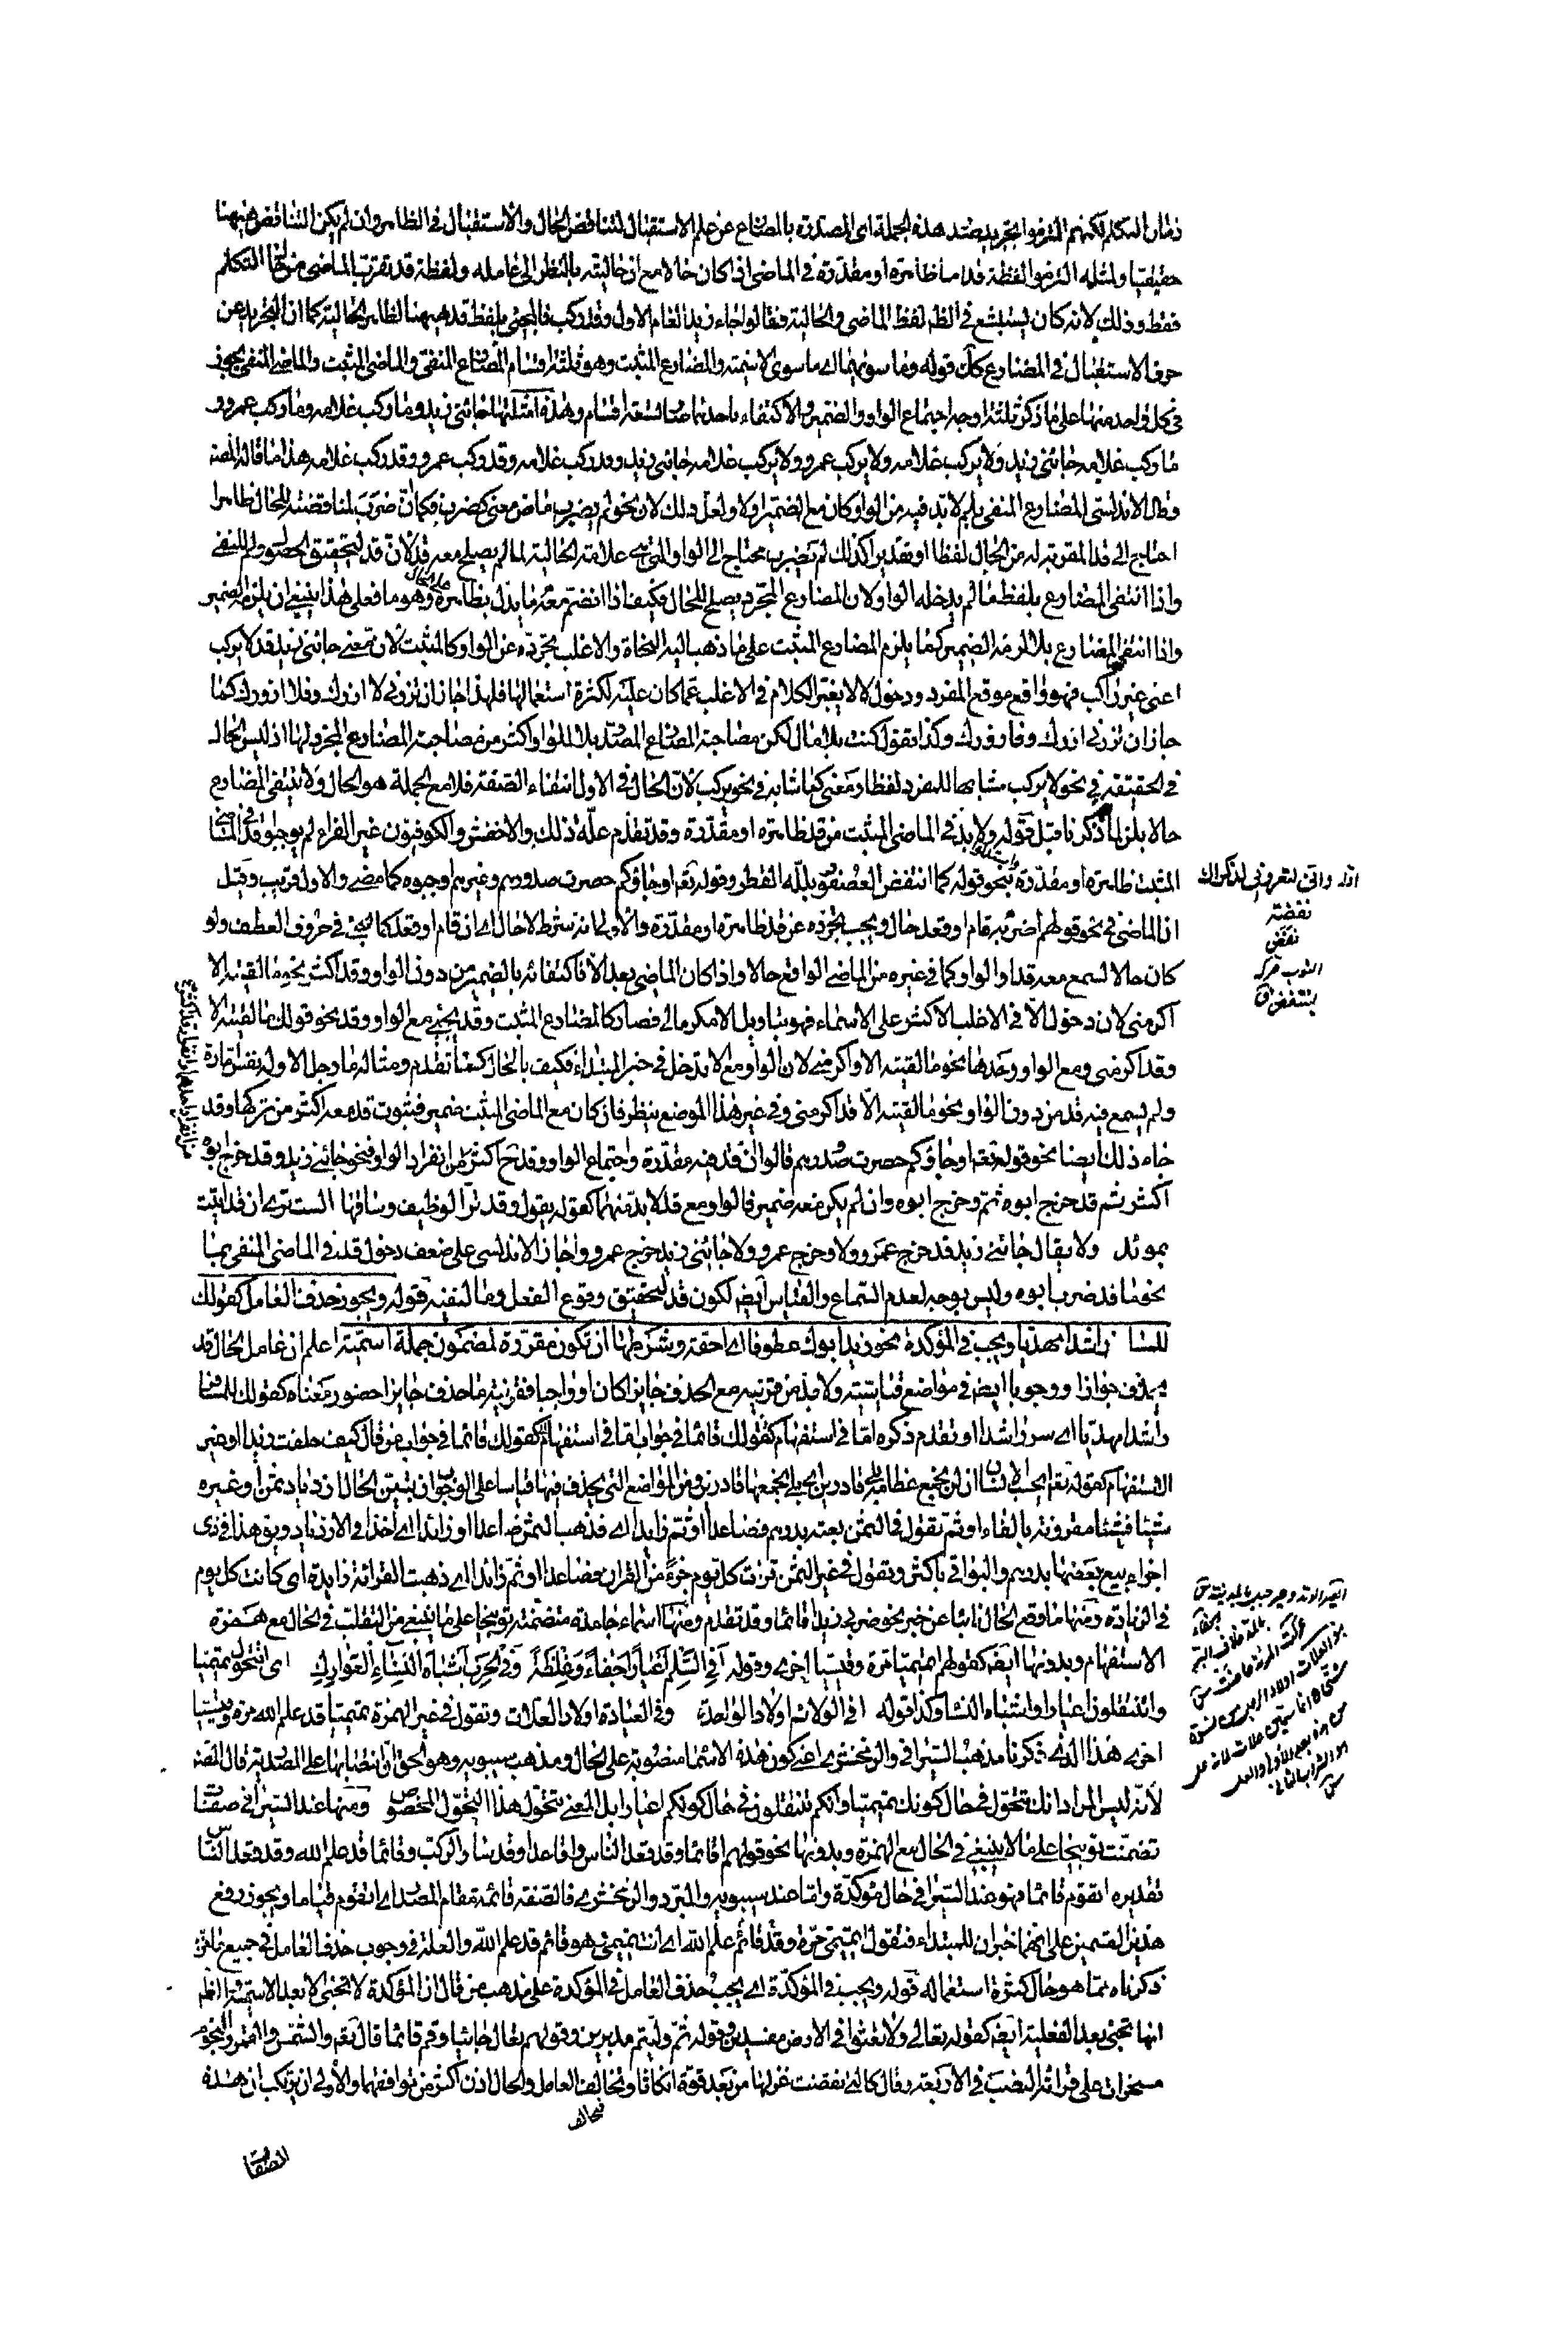 زمان التكلم لكنهم التزموا تجريد صدر هذه الجملة اى المصدرة بالمضارع عن علم الاستقبال لتناقض الحال والاستقبال فى الظاهر وان لم يكن التناقض ههنا
حقيقيا ولمثله التزموا لفظة قد اما ظاهرة او مقدرة فى الماضى اذا كان حالا مع ان حاليته بالنظر الى عامله ولفظة قد تقرب الماضى من حال التكلم
فقط وذلك لانه كان يستبشع فى الظاهر لفظ الماضى والحالية فقالوا جاء زيد العام الاول وقد ركب فالمجئ بلفظ قد ههنا لظاهر الحالية كما ان التجريد عن
حرف الاستقبال فى المضارع كذلك قوله وما سواهما اى ما سوى الاسمية والمضارع المثبت وهو ثلثة اقسام المضارع المنفى والماضى المثبت والماضى المنفى يجوز
فى كل واحد منها على ما ذكر ثلثة اوجه اجتماع الواو والضمير والاكتفاء باحدهما صار تسعة اقسام وهذه امثلتها جاءنى زيد وما ركب غلامه وما ركب عمرو و
ما ركب غلامه جاءنى زيد ولا يركب غلامه ولا يركب عمرو ولا يركب غلامه جاءنى زيد وقد ركب غلامه وقد ركب عمرو وقد ركب غلامه هذا ما قاله المصنف
وقال الاندلسى المضارع المنفى بلم لابد فيه من الواو كان مع الضمير او لا ولعل ذلك لان نحو لم يضرب ماض معنى كضرب فكما ان ضرب لمناقضته للحال ظاهرا
احتاج الى قد المقربة له من الحال لفظا او تقديرا كذلك لم يضرب محتاج الى الواو التى هى علامة الحالية لما لم يصلح معه قد لان قد لتحقيق الحصول ولم للنفى
واذا انتفى المضارع بلفظ ما لم يدخله الواو لان المضارع المجرد يصلح للحال فكيف اذا انضم معه ما يدل بظاهره على الحال وهو ما فعلى هذا ينبغى ان يلزمه الضمير
واذا انتفى المضارع بلا لزمه الضمير كما يلزم المضارع المثبت على ما ذهب اليه النحاة والاغلب تجرده عن الواو كالمثبت لان معنى جاءنى زيد لا يركب
اعنى غير راكب فهو واقع موقع المفرد ودخول لا لا يغير الكلام فى الاغلب عما كان عليه لكثرة استعمالها فلهذا جاز ان تزرنى لا ازرك وفلا ازورك كما
جاز ان تزرنى ازرك وفازورك وكذا تقول كنت بلا مال لكن مصاحبة المضارع المصدر بلا للواو اكثر من مصاحبة المضارع المجرد لها اذ ليس الحال
فى الحقيقة فى نحو لا يركب مشابها للمفرد لفظا ومعنى كما شابه فى نحو يركب لان الحال فى الاول انتفاء الصفة فلا مع الجملة هو الحال ولا ينتفى المضارع
حالا بلن لما ذكرنا قبل قوله ولابد فى الماضى المثبت من قد ظاهرة او مقدرة وقد تقدم علة ذلك والاخفش والكوفيون غير الفراء لم يوجبوا قد فى الماضى
المثبت ظاهرة او مقدرة واستدلوا بنحو قوله كما انتفض العصفور بلله القطر وقوله تعم او جاؤكم حصرت صدورهم وغيرهم اوجبوه كما مضى والاول قريب وقيل
ان الماضى فى نحو قولهم اضربه قام او قعد حال ويجب تجرده عن قد ظاهرة او مقدرة والاولى انه شرط لا حال اى ان قام او قعد كما يجئ فى حروف العطف ولو
كان حالا لسمع معه قد او الواو كما فى غيره من الماضى الواقع حالا واذا كان الماضى بعد الا فاكتفائه بالضمير من دون الواو وقد اكثر نحو ما لقيته الا
اكرمنى لان دخول الا فى الاغلب الاكثر على الاسماء فهو بتأويل الا مكرما لى فصار كالمضارع المثبت وقد يجئ مع الواو وقد نحو قولك ما لقيته الا
وقد اكرمنى ومع الواو وحدها نحو ما لقيته الا واكرمنى لان الواو مع الا تدخل فى خبر المبتداء فكيف بالحال كما تقدم ومثاله ما رجل الا وله نفس امارة
ولم يسمع فيه قد من دون الواو نحو ما لقيته الا قد اكرمنى وفى غير هذا الموضع ينظر فان كان مع الماضى المثبت ضمير فثبوت قد معه اكثر من تركها وقد
جاء ذلك ايضا نحو قوله تعم او جاؤكم حصرت صدورهم قالوا ان قد فيه مقدرة واجتماع الواو وقد ح اكثر من انفراد الواو فنحو جاءنى زيد وقد خرج ابوه
اكثر ثم قد خرج ابوه ثم وخرج ابوه وان لم يكن معه ضمير فالواو مع قد لابد منهما كقوله يقول وقد تر الوظيف وساقها الست ترى ان قد اتيت
بموئد ولا يقال جاءنى زيد قد خرج عمرو ولا وخرج عمرو ولا جاءنى زيد خرج عمرو واجاز الاندلسى على ضعف دخول قد فى الماضى المنفى بما
نحو ما قد ضرب ابوه وليس بوجه لعدم السماع والقياس ايضا لكون قد لتحقيق وقوع الفعل وما لنفيه قوله ويجوز حذف العامل كقولك
للمسافر راشدا مهديا ويجب فى المؤكدة نحو زيد ابوك عطوفا اى احقه وشرطها ان تكون مقررة لمضمون جملة اسمية اعلم ان عامل الحال قد
يحذف جوازا ووجوبا ايضا فى مواضع قياسية ولابد من قرينة مع الحذف جايزا كان او واجبا فقرينة ما حذف جايزا حضور معناه كقولك للمسافر
راشدا مهديا اى سر راشدا او تقدم ذكره اما فى استفهام كقولك قائما فى جواب اما فى استفهام كقولك قائما فى جواب من قال كيف خلفت زيدا او غير
الاستفهام كقوله تعم ايحسب الانسان ان لن نجمع عظامه بلى قادرين اى بلى نجمعها قادرين ومن المواضع التى يحذف فيها قياسا على الوجوب ان يتبين الحال ازدياد ثمن او غيره
شيئا فشيئا مقرونة بالفاء او ثم تقول فى الثمن بعته بدرهم فصاعدا او ثم زايدا اى فذهب الثمن صاعدا او زايدا اى اخذا فى الازدياد ويق هذا فى ذى
اجزاء بيع بعضها بدرهم والبواقى باكثر وتقول فى غير الثمن قرات كل يوم جزءً من القران فصاعدا او ثم زائدا اى ذهبت القرائة زايدة اى كانت كل يوم
فى الزيادة ومنها ما وقع الحال نائبا عن خبر نحو ضربى زيدا قائما وقد تقدم ومنها اسماء جامدة متضمنة توبيخا على ما لا ينبغى من التقلب فى الحال مع همزة
الاستفهام وبدونها ايضا كقولهم اتميميا مرة وقيسيا اخرى وقوله افى السلم اعيارا جفاءً وغلظةً وفى الحرب اشباه النساء العوارك اى اتتحول تميميا
واتنتقلون اعيارا واشباه النساء وكذا قوله افى الولائم اولادا لواحدة وفى العيادة اولاد العلات وتقول فى غير الهمزة تميميا قد علم الله مرة وقيسيا
اخرى هذا الذى ذكرنا مذهب السيرافى والزمخشرى اعنى كون هذه الاسماء منصوبة على الحال ومذهب سيبويه وهو الحق ان انتصابها على المصدرية قال المصنف
لانه ليس المراد انك تتحول فى حال كونك تميميا وانكم تنتقلون فى حال كونكم اعيارا بل المعنى تتحول هذا التحول المخصوص ومنها عند السيرافى صفات
تضمنت توبيخا على ما لا ينبغى فى الحال مع الهمزة وبدونها نحو قولهم اقائما وقد قعد الناس واقاعدا وقد سار الركب وقائما قد علم الله وقد قعد الناس
تقديره اتقوم قائما فهو عند السيرافى حال مؤكدة واما عند سيبويه والمبرد والزمخشرى فالصفة قائمة مقام المصدر اى اتقوم قياما ويجوز رفع
هذين القسمين على انهما خبران للمبتداء فتقول اتميمى مرة وقد قائم علم الله اى انت تميمى وهو قائم قد علم الله والعلة فى وجوب حذف العامل فى جميع ما
ذكرناه مما هو حال كثرة استعماله قوله ويجب فى المؤكدة اى يجب حذف العامل فى المؤكدة على مذهب من قال ان المؤكدة لا تجئ الا بعد الاسمية والظاهر
انها تجئ بعد الفعلية ايضا كقوله تعالى ولا تعثوا فى الارض مفسدين وقوله ثم وليتم مدبرين وقولهم تعال جائيا وقم قائما قال تعم والشمس والقمر والنجوم
مسخرات على قرائة النصب فى الاربعة وقال كالتى نقضت غزلها من بعد قوة انكاثا وتخالف العامل والحال اذن اكثر من توافقهما والاولى ان يرتكب ان هذه
الصفات